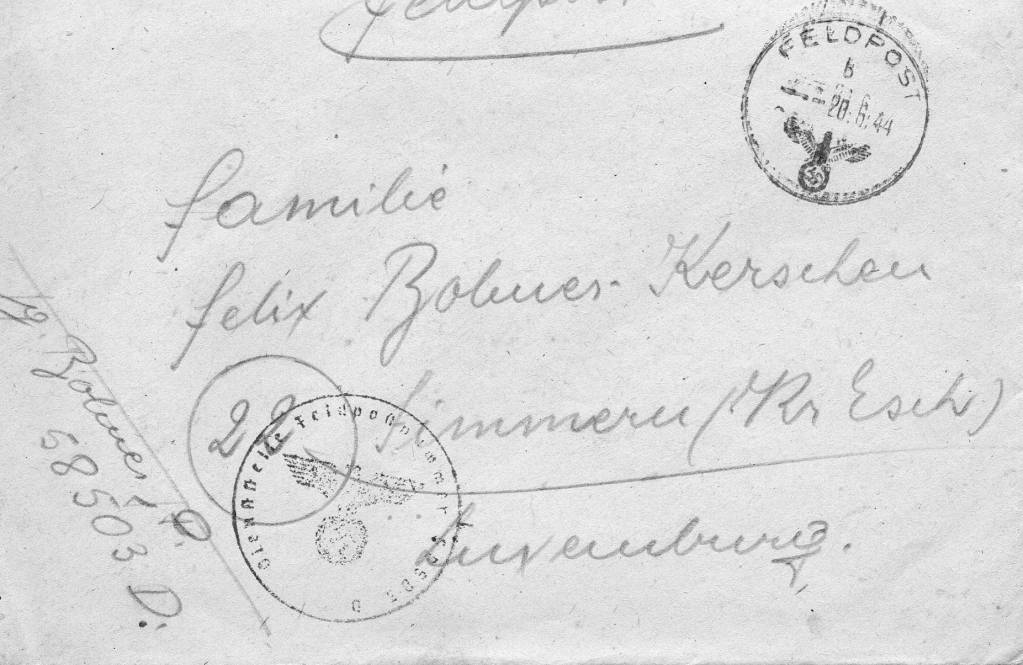 Feldpost
FELDPOST
b
20.6.44
Familie
Felix Bohmer-Kerschen
22 Simmern (Kr Esch)
Luxemburg.
Dienststelle Feldpostnummer
Bohmer
58503 D.